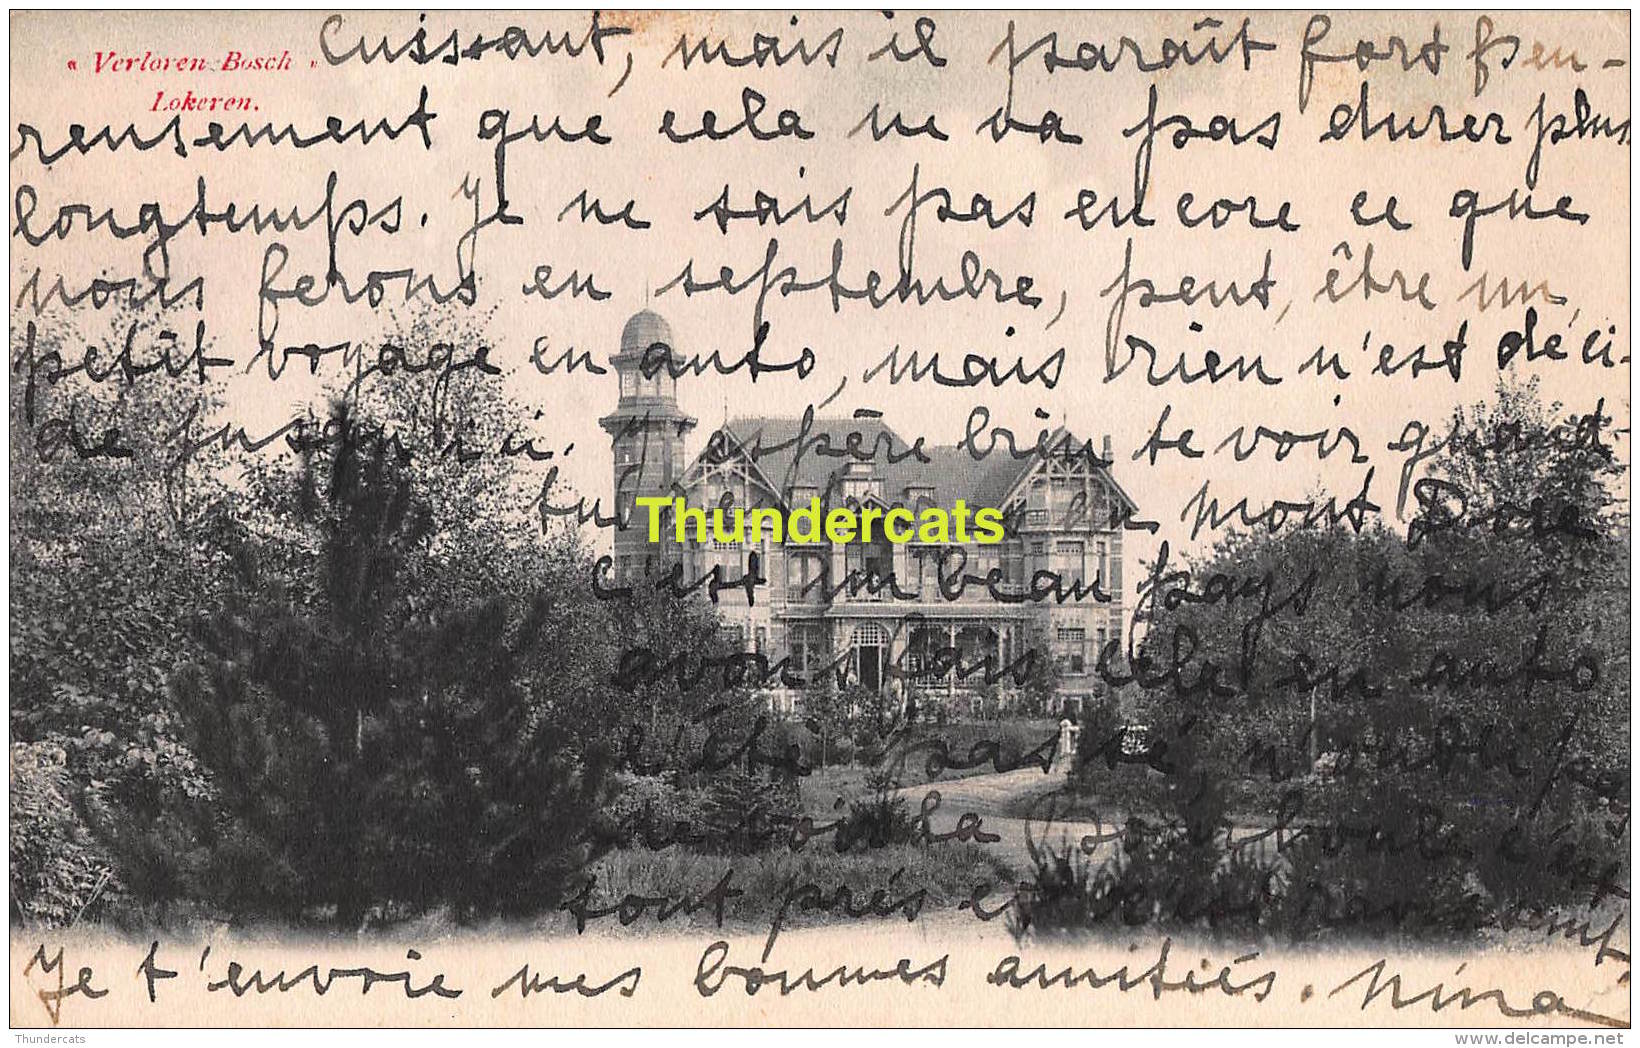 « Verloren-Bosch »
Lokeren.
cuissant, mais il paraît fort peu-
rensement que cela ne va pas durer plus
longtemps. Je ne sais pas encore ce que
nous ferons en septembre, peut, être un
petit voyage en auto, mais rien n'est déci-
de jusqu'ici. J'espère bien te voir quand
tu en mont Dore
c'est un beau pays nous
avons fais cela en auto
l'été passé, n'oublie pas
de voir la Bourboule c'est
tout près et c'est
Je t'envoie mes bonnes amitiés. Nina
Thundercats
Thundercats
www.delcampe.net